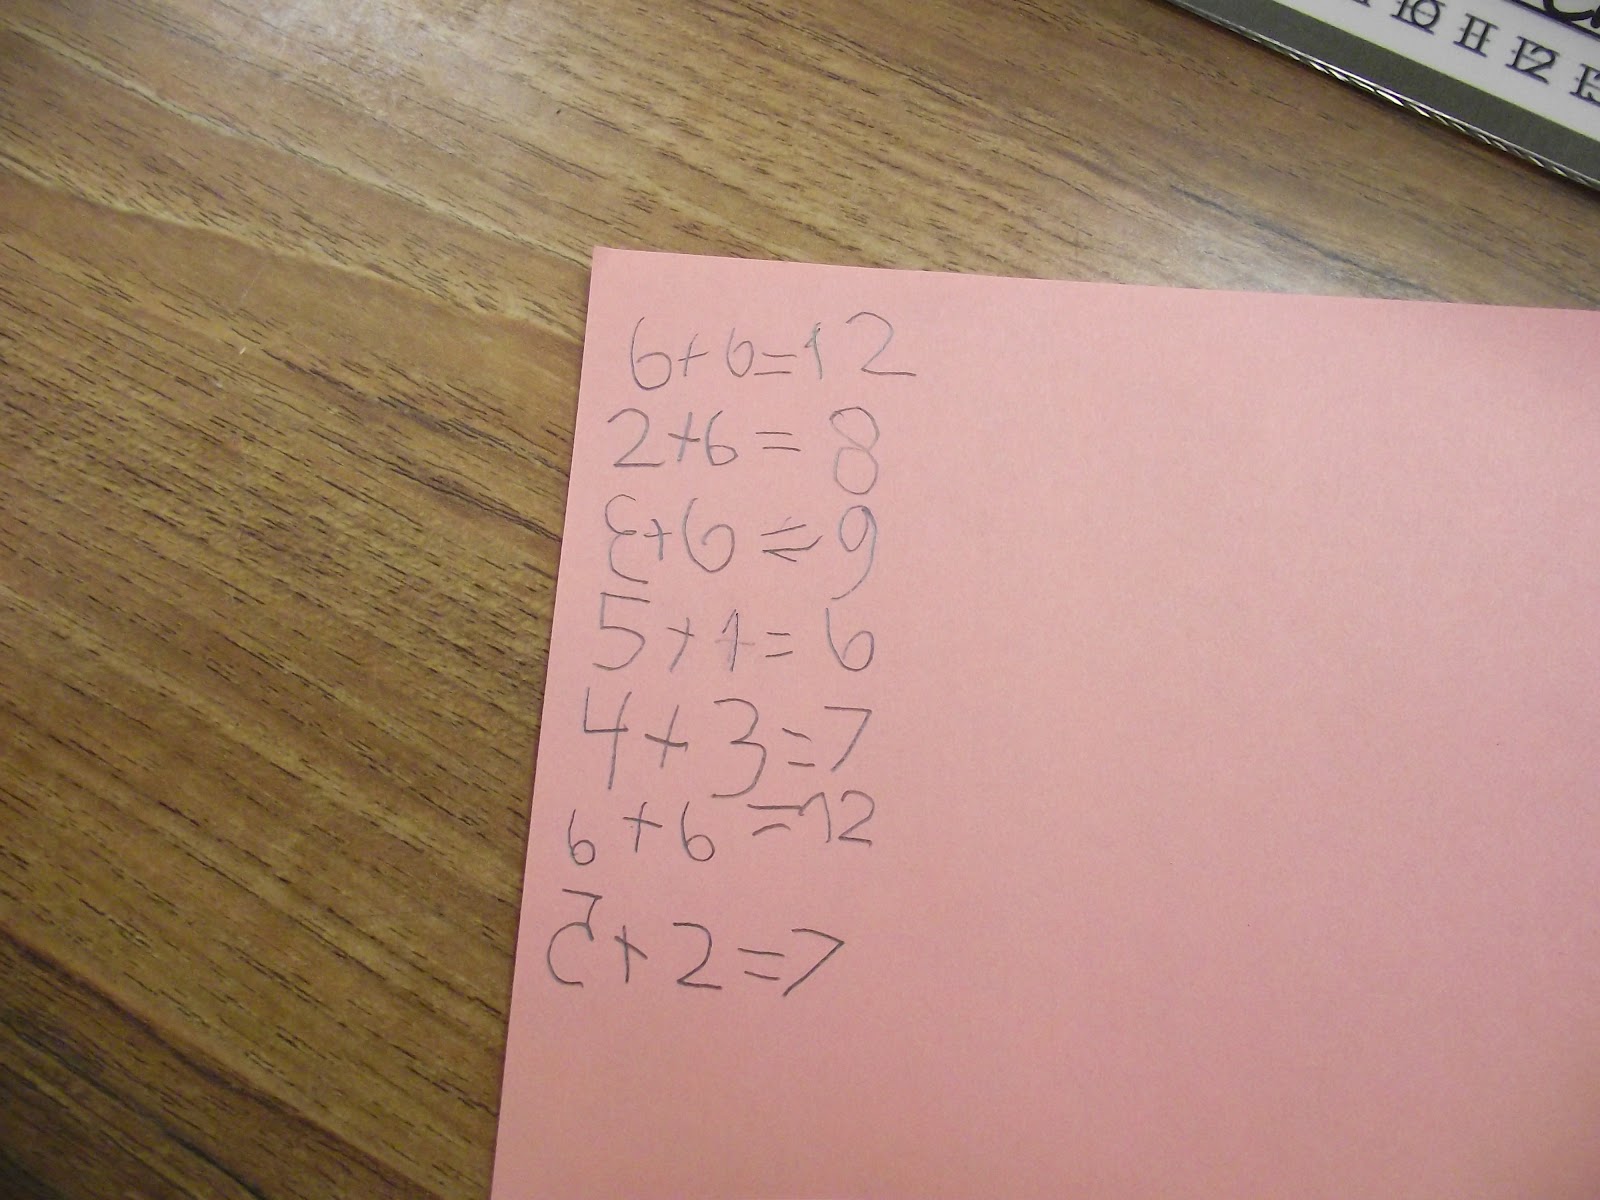 10 11 12
6+6=12
2+6=8
3+6=9
5+1=6
4+3=7
6+6=12
5+2=7